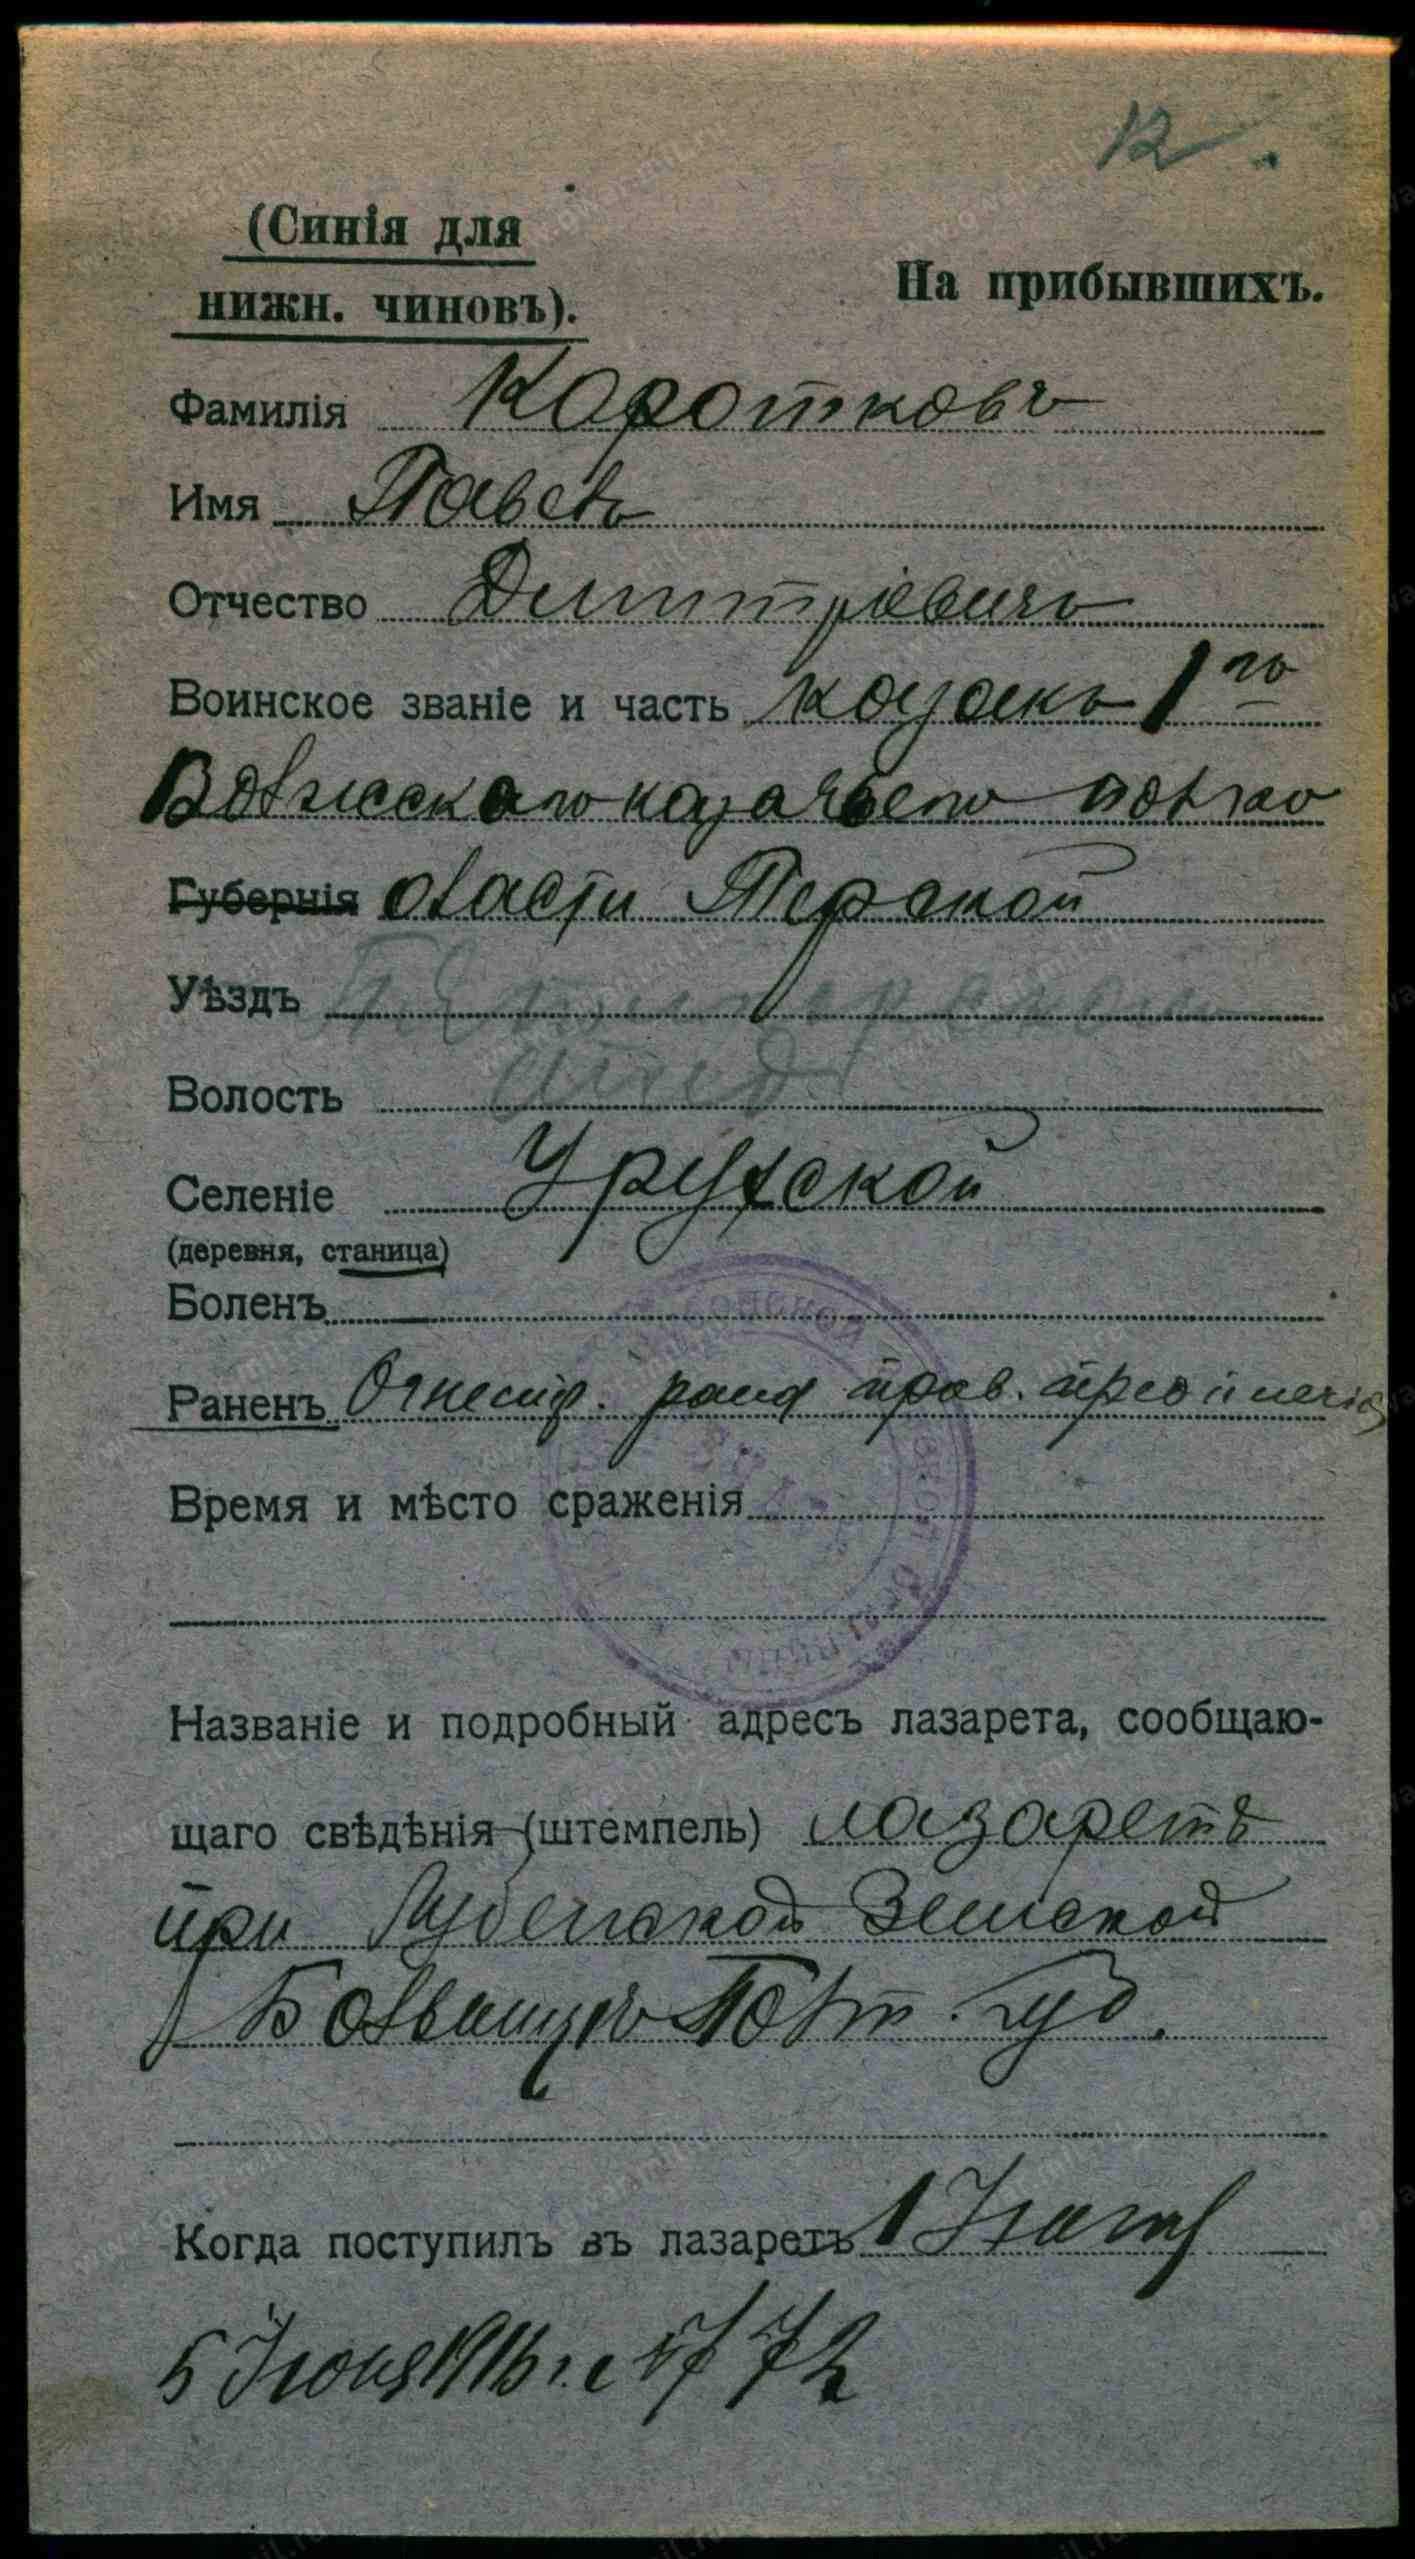 12
(Синія для
нижн. чиновъ).
На прибывшихъ.
Фамилія Коротковъ
Имя Павелъ
Отчество Дмитріевичъ
Воинское званіе и часть казакъ 1го
Волжскаго казачьего полка
Губернія области Терской
Уѣздъ
Волость отд
Селеніе Урухской
(деревня, станица)
Боленъ
Раненъ Огнестр. рана прав. предплечія
Время и мѣсто сраженія
Названіе и подробный адресъ лазарета, сообщаю-
щаго свѣдѣнія (штемпель) лазаретъ
при Лубенской Земской
Больницѣ Полт. губ.
Когда поступилъ въ лазаретъ 1 Іюня
5 Іюня 1916 г. № 72